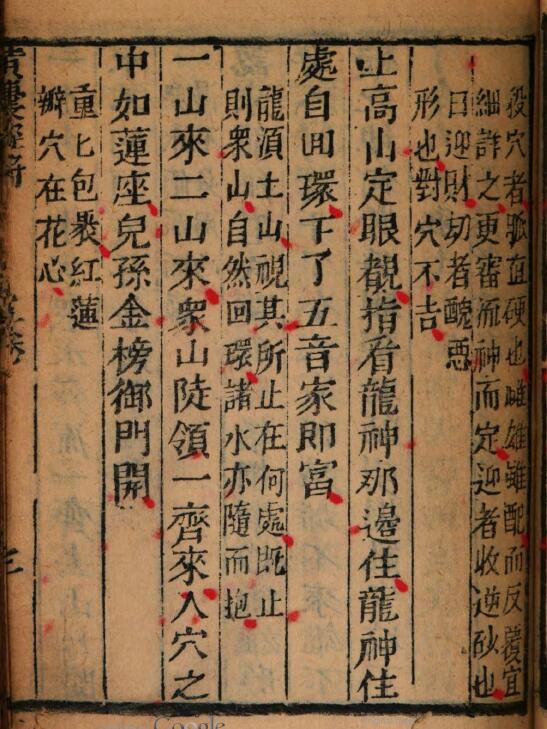 殺穴者弧直硬也雌雄雖配而反覆宜
細詳之更審流神而定迎者收逆砂也
曰迎財刼者醜惡
形也對穴不吉
上高山定眼覩指看龍神那邊住龍神住
處自囬環下了五音家即富
龍須土山視其所止在何處既止
則衆山自然回環諸水亦隨而抱
一山來二山來衆山陡領一齊來入穴之
中如蓮座兒孫金榜御門開
重匕包裹紅蓮
瓣穴在花心
Google